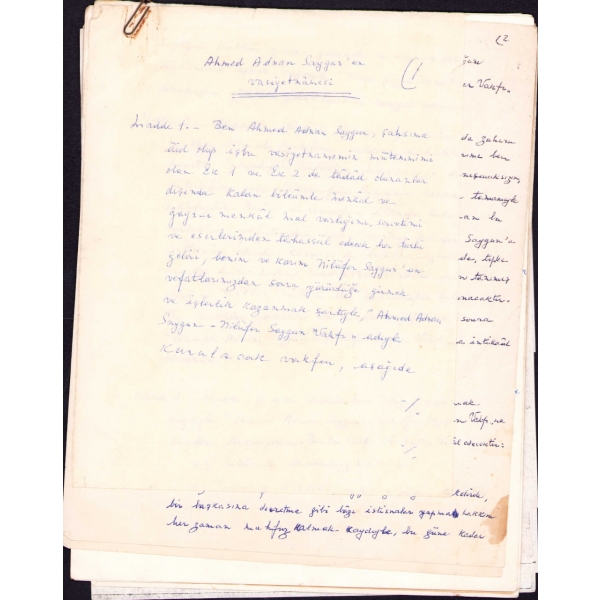 Ahmed Adnan Saygun'un
vasiyetnâmesi
(1
Madde 1.- Ben Ahmed Adnan Saygun, şahsıma
âid olup işbu vasiyetnamemin mütemmimi
olan Ek 1 ve Ek 2 de tâdâd olunanlar
dışında kalan bilcümle menkûl ve
gayr-ı menkûl mal varlığımı, servetimi
ve eserlerimden tahassul edecek her türlü
geliri, benim ve karım Nilüfer Saygun'un
vefatlarımızdan sonra yürürlüğe girmek
ve işlerlik kazanmak şartiyle, "Ahmed Adnan
Saygun - Nilüfer Saygun Vakfı" adıyle
kurulacak vakfın, aşağıda
-/.
-/.
(2
Vakfı-
da
ben
tamamıyle
bu
Saygun'a
da,
sonra
intikâl
Vakfı'na
bir başkasına devretme gibi bâzı istisnaları yapmak hakkım
her zaman mahfuz kalmak kaydıyle, bu güne kadar